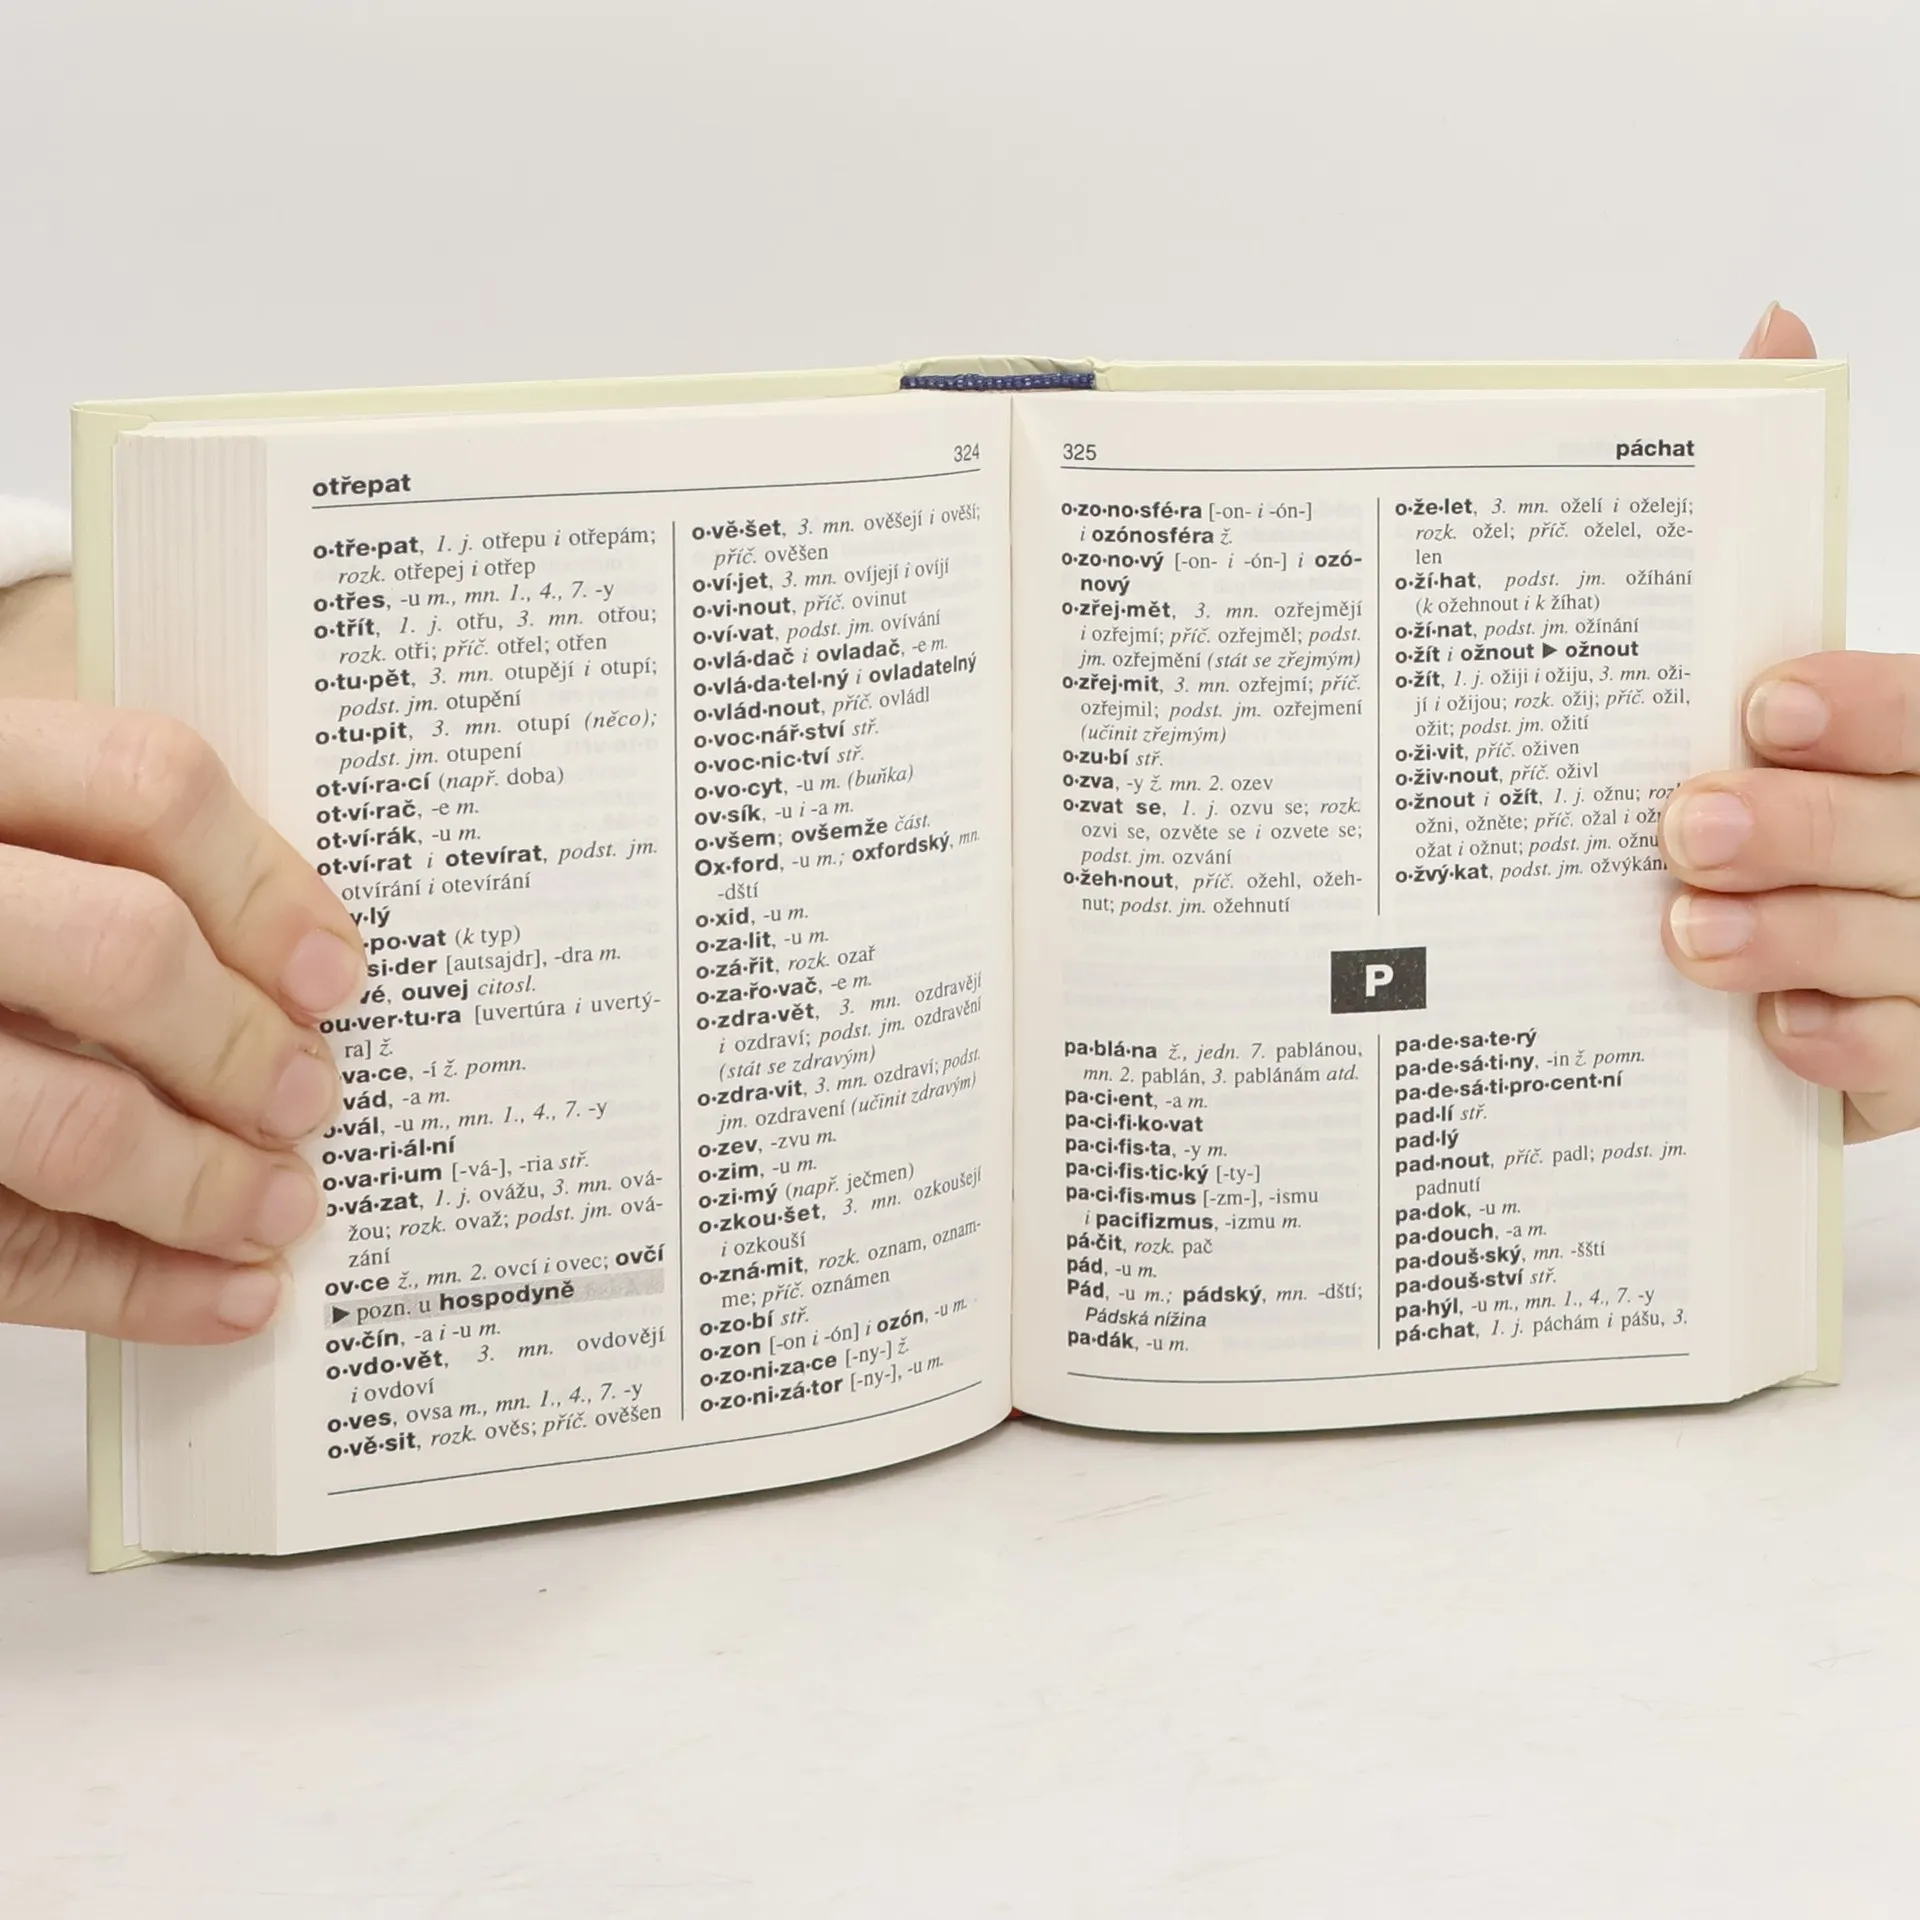 otřepat
324
o·tře·pat, 1. j. otřepu i otřepám;
rozk. otřepej i otřep
o·třes, -u m., mn. 1., 4., 7. -y
o·třít, 1. j. otřu, 3. mn. otřou;
rozk. otři; příč. otřel; otřen
o·tu·pět, 3. mn. otupějí i otupí;
podst. jm. otupění
o·tu·pit, 3. mn. otupí (něco);
podst. jm. otupení
ot·ví·ra·cí (např. doba)
ot·ví·rač, -e m.
ot·ví·rák, -u m.
ot·ví·rat i otevírat, podst. jm.
otvírání i otevírání
·lý
·po·vat (k typ)
si·der [autsajdr], -dra m.
vé, ouvej citosl.
ou·ver·tu·ra [uvertúra i uvertý-
ra] ž.
va·ce, -í ž. pomn.
vád, -a m.
o·vál, -u m., mn. 1., 4., 7. -y
o·va·ri·ál·ní
o·va·ri·um [-vá-], -ria stř.
o·vá·zat, 1. j. ovážu, 3. mn. ová-
žou; rozk. ovaž; podst. jm. ová-
zání
ov·ce ž., mn. 2. ovcí i ovec; ovčí
▶ pozn. u hospodyně
ov·čín, -a i -u m.
o·vdo·vět, 3. mn. ovdovějí
i ovdoví
o·ves, ovsa m., mn. 1., 4., 7. -y
o·vě·sit, rozk. ověs; příč. ověšen
o·vě·šet, 3. mn. ověšejí i ověší;
příč. ověšen
o·ví·jet, 3. mn. ovíjejí i ovíjí
o·vi·nout, příč. ovinut
o·ví·vat, podst. jm. ovívání
o·vlá·dač i ovladač, -e m.
o·vlá·da·tel·ný i ovladatelný
o·vlád·nout, příč. ovládl
o·voc·nář·ství stř.
o·voc·nic·tví stř.
o·vo·cyt, -u m. (buňka)
ov·sík, -u i -a m.
o·všem; ovšemže část.
Ox·ford, -u m.; oxfordský, mn.
-dští
o·xid, -u m.
o·za·lit, -u m.
o·zá·řit, rozk. ozař
o·za·řo·vač, -e m.
o·zdra·vět, 3. mn. ozdravějí
i ozdraví; podst. jm. ozdravění
(stát se zdravým)
o·zdra·vit, 3. mn. ozdraví; podst.
jm. ozdravení (učinit zdravým)
o·zev, -zvu m.
o·zim, -u m.
o·zi·mý (např. ječmen)
o·zkou·šet, 3. mn. ozkoušejí
i ozkouší
o·zná·mit, rozk. oznam, oznam-
me; příč. oznámen
o·zo·bí stř.
o·zon [-on i -ón] i ozón, -u m.
o·zo·ni·za·ce [-ny-] ž.
o·zo·ni·zá·tor [-ny-], -u m.
325
páchat
o·zo·no·sfé·ra [-on- i -ón-]
i ozónosféra ž.
o·zo·no·vý [-on- i -ón-] i ozó-
nový
o·zřej·mět, 3. mn. ozřejmějí
i ozřejmí; příč. ozřejměl; podst.
jm. ozřejmění (stát se zřejmým)
o·zřej·mit, 3. mn. ozřejmí; příč.
ozřejmil; podst. jm. ozřejmení
(učinit zřejmým)
o·zu·bí stř.
o·zva, -y ž. mn. 2. ozev
o·zvat se, 1. j. ozvu se; rozk.
ozvi se, ozvěte se i ozvete se;
podst. jm. ozvání
o·žeh·nout, příč. ožehl, ožeh-
nut; podst. jm. ožehnutí
o·že·let, 3. mn. oželí i oželejí;
rozk. ožel; příč. oželel, ože-
len
o·ží·hat, podst. jm. ožíhání
(k ožehnout i k žíhat)
o·ží·nat, podst. jm. ožínání
o·žít i ožnout ▶ ožnout
o·žít, 1. j. ožiji i ožiju, 3. mn. oži-
jí i ožijou; rozk. ožij; příč. ožil,
ožit; podst. jm. ožití
o·ži·vit, příč. oživen
o·živ·nout, příč. oživl
o·žnout i ožít, 1. j. ožnu; roz
ožni, ožněte; příč. ožal i ož
ožat i ožnut; podst. jm. ožnu
o·žvý·kat, podst. jm. ožvýkán
P
pa·blá·na ž., jedn. 7. pablánou,
mn. 2. pablán, 3. pablánám atd.
pa·ci·ent, -a m.
pa·ci·fi·ko·vat
pa·ci·fis·ta, -y m.
pa·ci·fis·tic·ký [-ty-]
pa·ci·fis·mus [-zm-], -ismu
i pacifizmus, -izmu m.
pá·čit, rozk. pač
pád, -u m.
Pád, -u m.; pádský, mn. -dští;
Pádská nížina
pa·dák, -u m.
pa·de·sa·te·rý
pa·de·sá·ti·ny, -in ž. pomn.
pa·de·sá·ti·pro·cent·ní
pad·lí stř.
pad·lý
pad·nout, příč. padl; podst. jm.
padnutí
pa·dok, -u m.
pa·douch, -a m.
pa·douš·ský, mn. -šští
pa·douš·ství stř.
pa·hýl, -u m., mn. 1., 4., 7. -y
pá·chat, 1. j. páchám i pášu, 3.